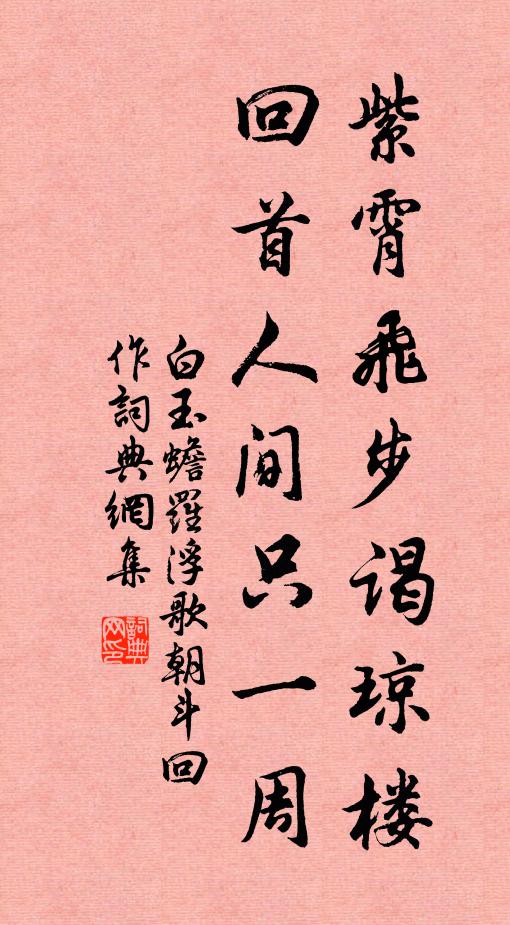 紫霄飛步谒琼楼
回首人间只一周
白玉蟾羅浮歌朝斗回
作詞典網集
詞典网印